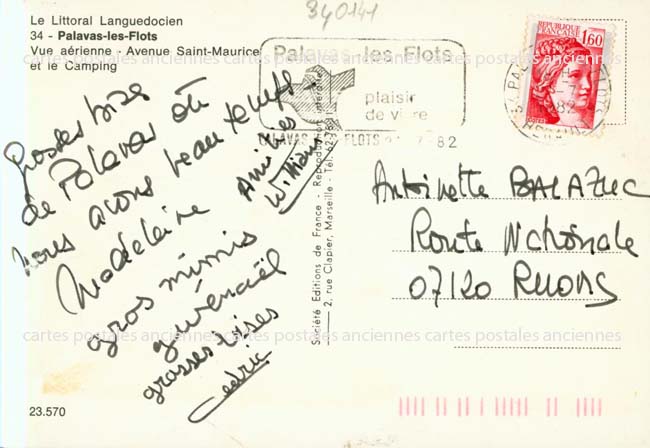 340141
Le Littoral Languedocien
34 - Palavas-les-Flots
Vue aérienne - Avenue Saint-Maurice
et le Camping
Grosses bises
de Palavas où
nous avons beau temps
Madeleine
Amitiés
William
gros mimis
gwénaël
grosses bises
Cédric
23.570
Société Editions de France - Reproduction interdite
2, rue Clapier, Marseille - Tél.
Palavas-les-Flots
plaisir
de vivre
PALAVAS FLOTS 82
REPUBLIQUE FRANÇAISE
1,60
POSTES
Antoinette BALAZUC
Route Nationale
07120 RUOMS
cartes postales anciennes cartes postales anciennes cartes postales anciennes
cartes postales anciennes cartes postales anciennes cartes postales anciennes